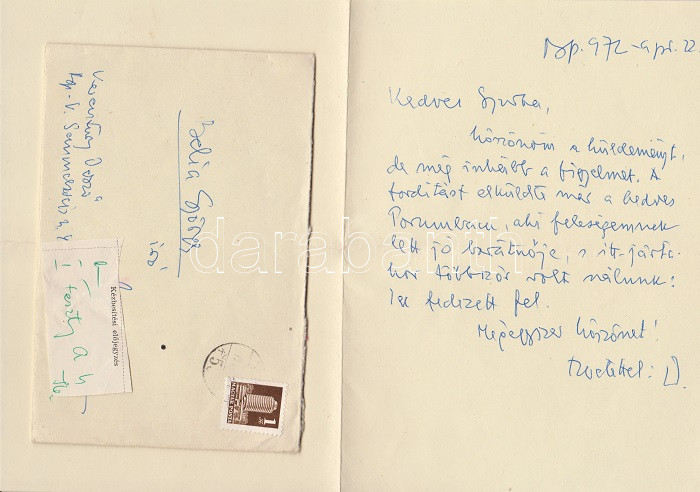 Bp. 972 - apr. 22.
Kedves Gyurka,
köszönöm a küldeményt,
de még inkább a figyelmet. A
fordítást elküldte már a kedves
aki feleségemnek
lett jó barátnője, s itt-járta-
kor többször volt nálunk:
fedezett fel.
Mégegyszer köszönet!
Szeretettel: D
Belia György
Vasárhelyi
Bp. V.
Kézbesítési előjegyzés
a
MAGYAR POSTA
1 Ft
darabanth